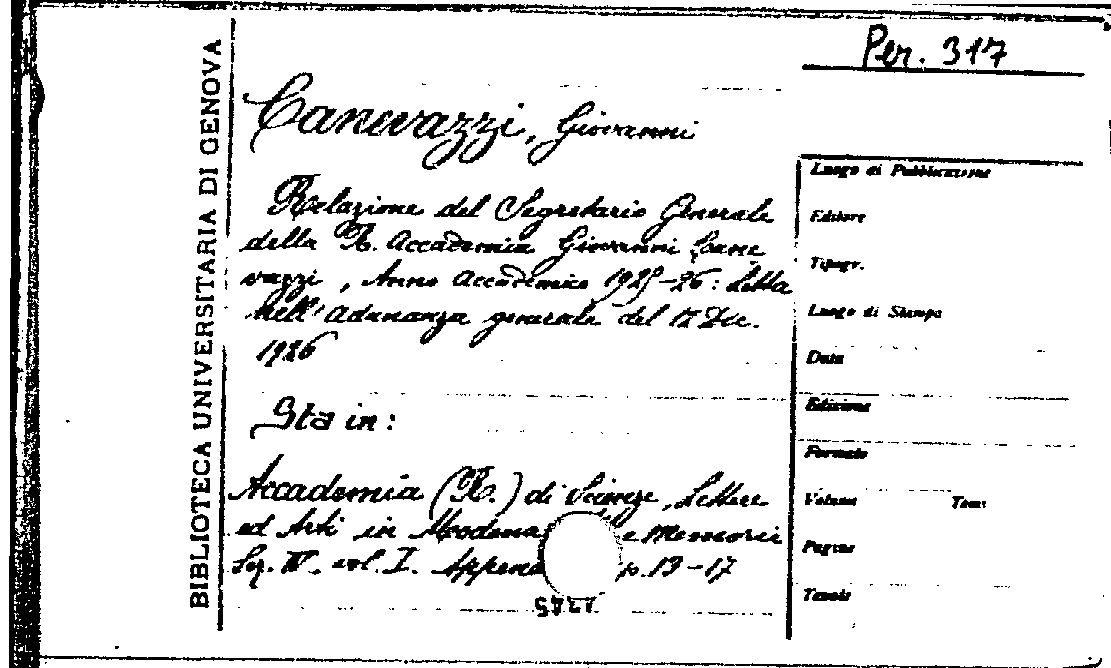 BIBLIOTECA UNIVERSITARIA DI GENOVA
Per. 317
Canevazzi, Giovanni
Relazione del Segretario Generale
della R. Accademia Giovanni Cane
vazzi, Anno Accademico 1925-26: letta
nell'adunanza generale del 12 Dic.
1926
Sta in:
Accademia (R.) di Scienze, Lettere
ed Arti in Modena e Memorie
Ser. IV. vol. I. Appen p. 13-17
Luogo di Pubblicazione
Editore
Tipogr.
Luogo di Stampa
Data
Edizione
Formato
Volumi Tomi
Pagine
Tavole